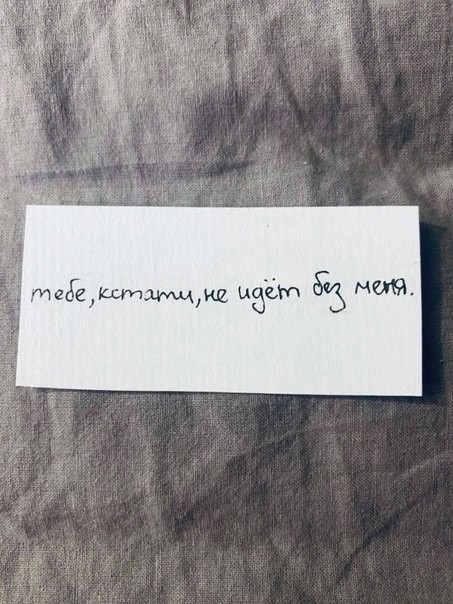 тебе, кстати, не идёт без меня.